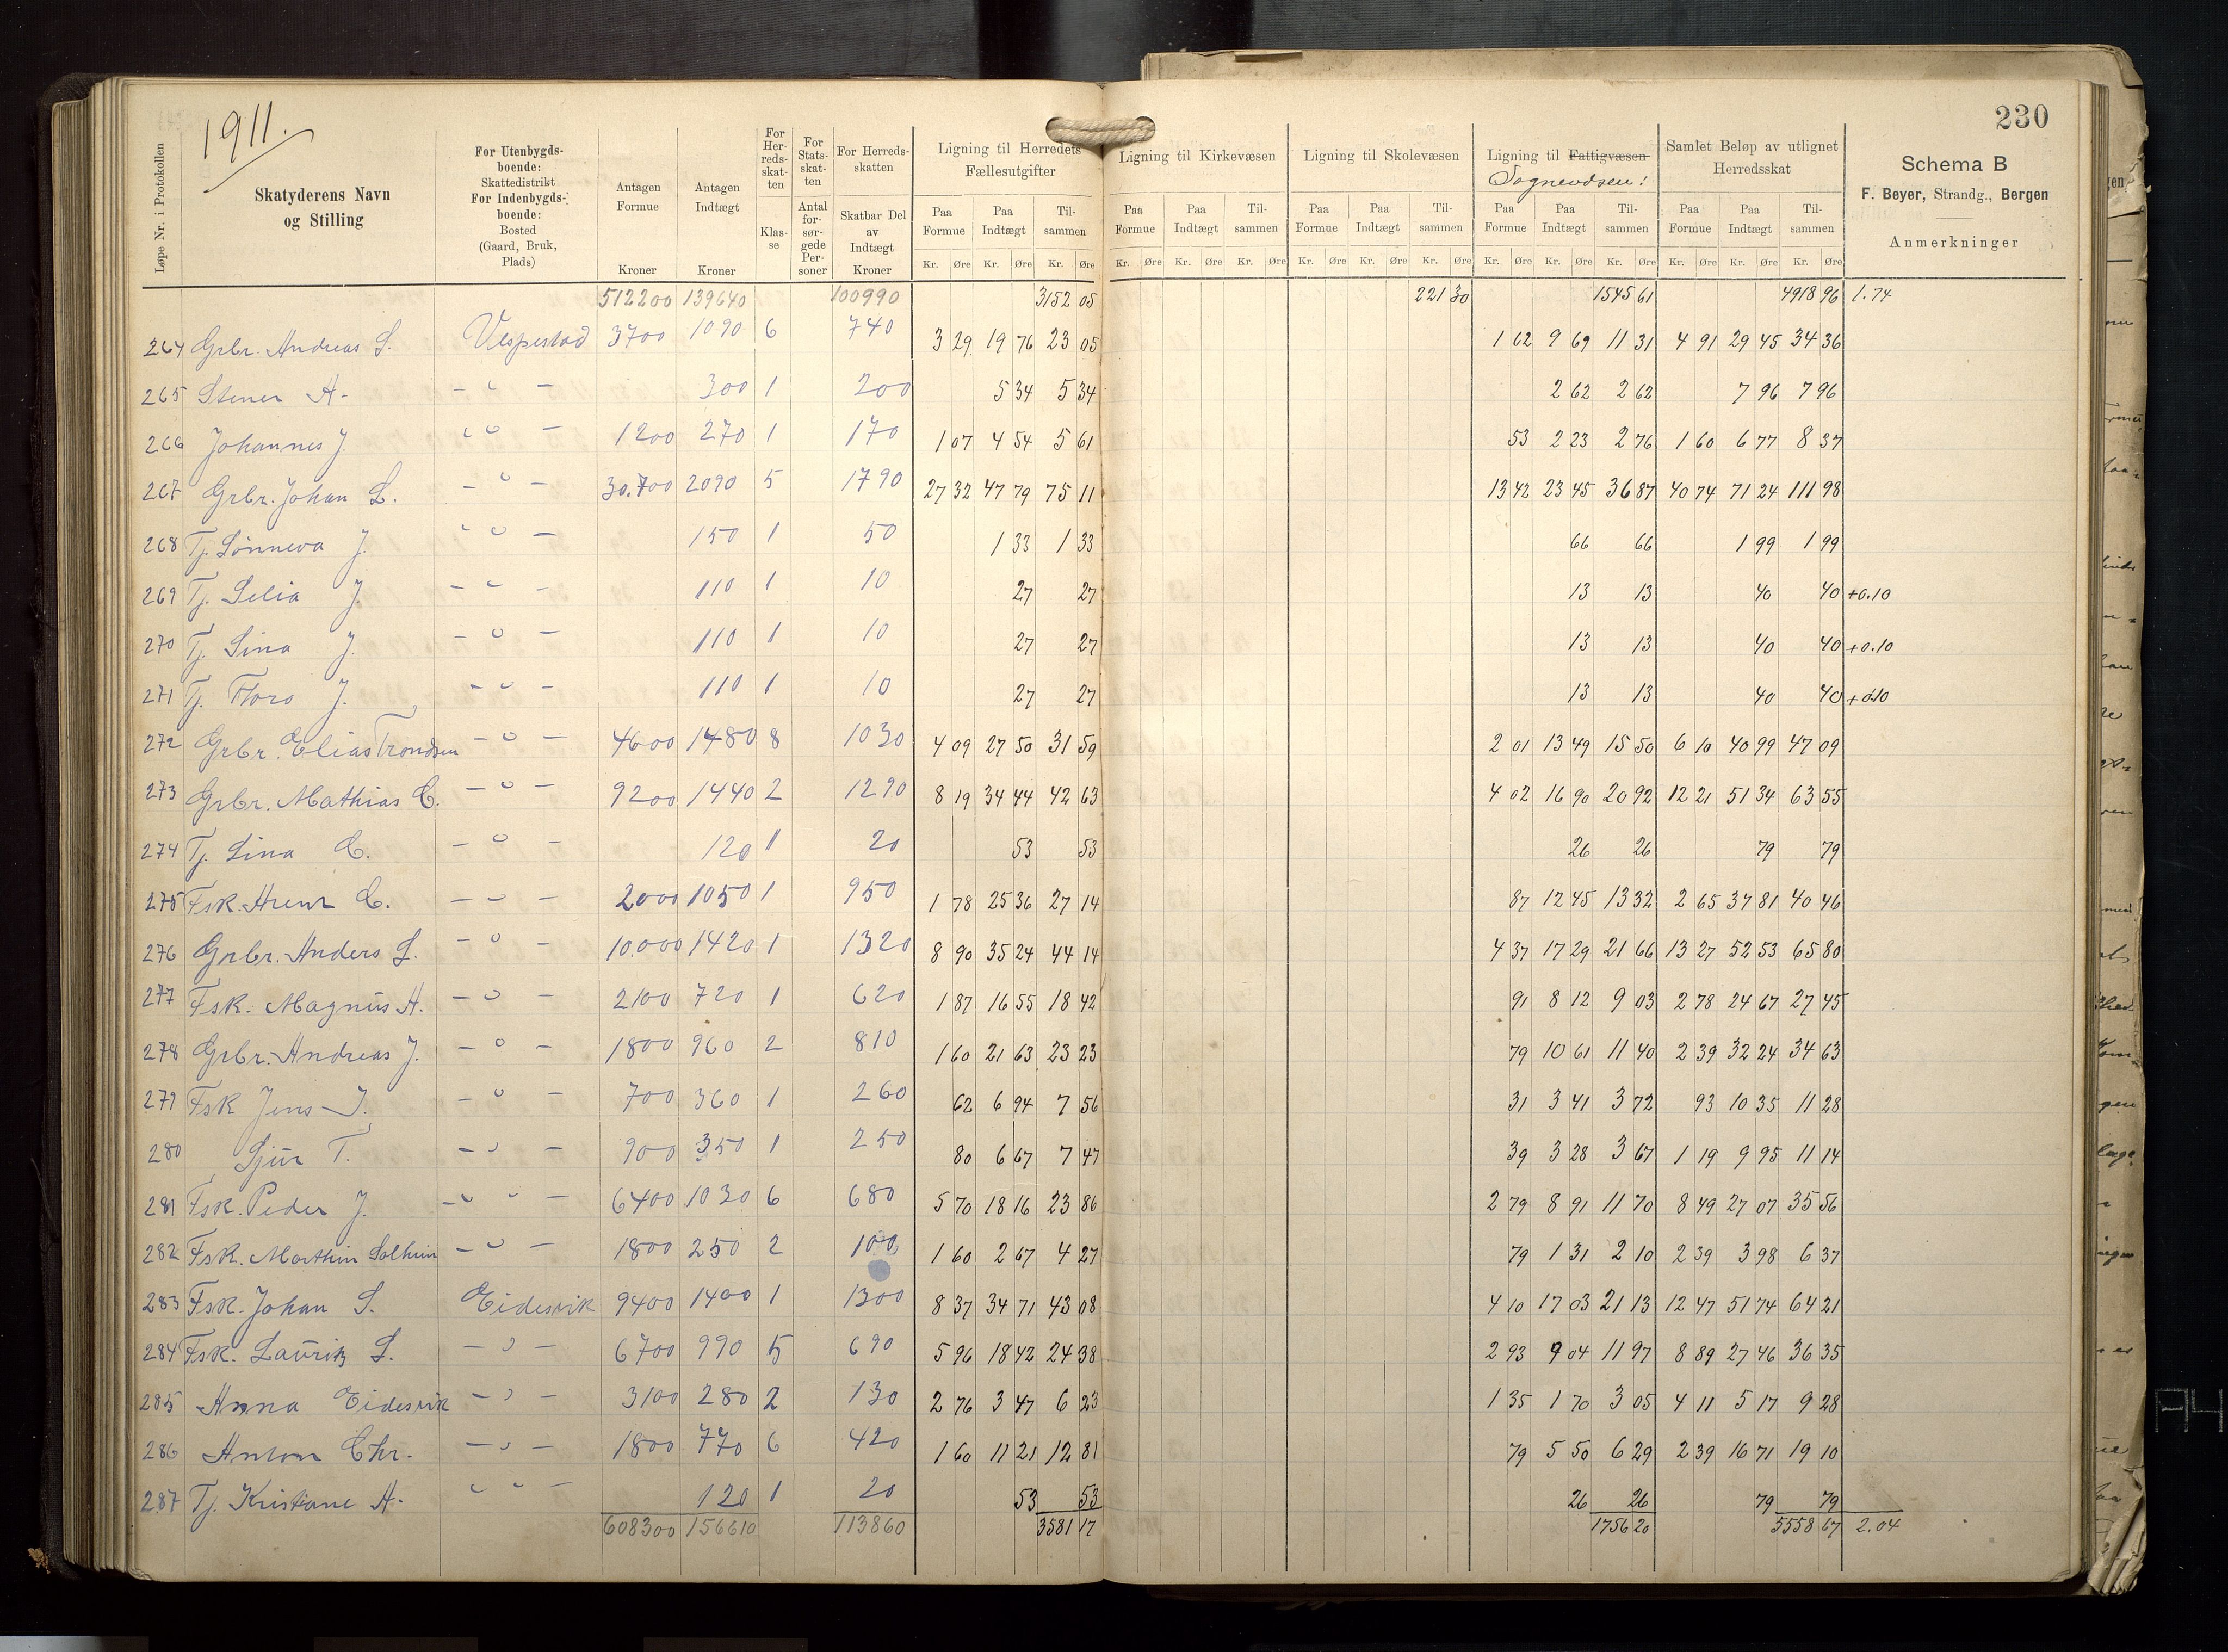 1911.
230
Løpe Nr. i Protokollen
Skatyderens Navn og Stilling
For Utenbygdsboende: Skattedistrikt For Indenbygdsboende: Bosted (Gaard, Bruk, Plads)
Antagen Formue Kroner
Antagen Indtægt Kroner
For Herredsskatten Klasse
For Statsskatten Antal forsørgede Personer
For Herredsskatten Skatbar Del av Indtægt Kroner
Ligning til Herredets Fællesutgifter
Paa Formue Paa Indtægt Tilsammen
Kr. Øre Kr. Øre Kr. Øre
Ligning til Kirkevæsen
Paa Formue Paa Indtægt Tilsammen
Kr. Øre Kr. Øre Kr. Øre
Ligning til Skolevæsen
Paa Formue Paa Indtægt Tilsammen
Kr. Øre Kr. Øre Kr. Øre
Ligning til Fattigvæsen
Paa Formue Paa Indtægt Tilsammen
Kr. Øre Kr. Øre Kr. Øre
Samlet Beløp av utlignet Herredsskat
Paa Formue Paa Indtægt Tilsammen
Kr. Øre Kr. Øre Kr. Øre
Schema B
F. Beyer, Strandg., Bergen
Anmerkninger
512200 139640 100990 3152 05 221 30 1545 61 4918 96 1.74
264 Grbr. Andreas S. Vespestad 3700 1090 6 740 3 29 19 76 23 05 1 62 9 69 11 31 4 91 29 45 34 36
265 Stener A. - " - 300 1 200 5 34 5 34 2 62 2 62 7 96 7 96
266 Johannes J. - " - 1200 270 1 170 1 07 4 54 5 61 53 2 23 2 76 1 60 6 77 8 37
267 Grbr. Johan L. - " - 30.700 2090 5 1790 27 32 47 79 75 11 13 42 23 45 36 87 40 74 71 24 111 98
268 Tj. Sönneva J. - " - 150 1 50 1 33 1 33 66 66 1 99 1 99
269 Tj. Selia J. - " - 110 1 10 27 27 13 13 40 40 +0.10
270 Tj. Sina J. - " - 110 1 10 27 27 13 13 40 40 +0.10
271 Tj. Thora J. - " - 110 1 10 27 27 13 13 40 40 +0.10
272 Grbr. Elias Trondsen - " - 4600 1480 8 1030 4 09 27 50 31 59 2 01 13 49 15 50 6 10 40 99 47 09
273 Grbr. Mathias E. - " - 9200 1440 2 1290 8 19 34 44 42 63 4 02 16 90 20 92 12 21 51 34 63 55
274 Tj. Lina E. - " - 120 1 20 53 53 26 26 79 79
275 Fsk. E. - " - 2000 1050 1 950 1 78 25 36 27 14 87 12 45 13 32 2 65 37 81 40 46
276 Grbr. Anders L. - " - 10.000 1420 1 1320 8 90 35 24 44 14 4 37 17 29 21 66 13 27 52 53 65 80
277 Fsk. Magnus A. - " - 2100 720 1 620 1 87 16 55 18 42 91 8 12 9 03 2 78 24 67 27 45
278 Grbr. Andreas J. - " - 1800 960 2 810 1 60 21 63 23 23 79 10 61 11 40 2 39 32 24 34 63
279 Fsk Jens J. - " - 700 360 1 260 62 6 94 7 56 31 3 41 3 72 93 10 35 11 28
280 Sjur T. - " - 900 350 1 250 80 6 67 7 47 39 3 28 3 67 1 19 9 95 11 14
281 Fsk. Peder J. - " - 6400 1030 6 680 5 70 18 16 23 86 2 79 8 91 11 70 8 49 27 07 35 56
282 Fsk. Marthin Solheim - " - 1800 250 2 100 1 60 2 67 4 27 79 1 31 2 10 2 39 3 98 6 37
283 Fsk. Johan S. Eidesvik 9400 1400 1 1300 8 37 34 71 43 08 4 10 17 03 21 13 12 47 51 74 64 21
284 Fsk. Lauritz S. - " - 6700 990 5 690 5 96 18 42 24 38 2 93 9 04 11 97 8 89 27 46 36 35
285 Anna Eidesvik - " - 3100 280 2 130 2 76 3 47 6 23 1 35 1 70 3 05 4 11 5 17 9 28
286 Anton Chr. - " - 1800 770 6 420 1 60 11 21 12 81 79 5 50 6 29 2 39 16 71 19 10
287 Tj. Kristiane A. - " - 120 1 20 53 53 26 26 79 79
608300 156610 113860 3581 17 1756 20 5558 67 2.04